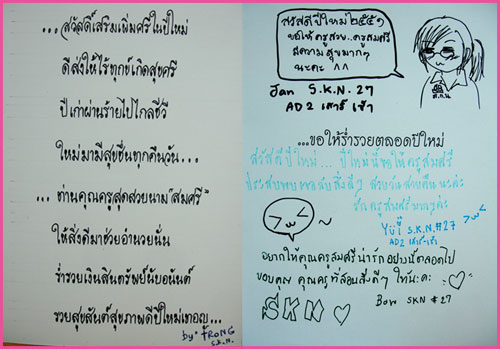 ...สวัสดิ์เสริมเพิ่มศรีในปีใหม่
ดีส่งให้ไร้ทุกข์เกิดสุขศรี
ปีเก่าผ่านร้ายไปไกลชีวี
ใหม่มามีสุขชื่นทุกคืนวัน...
...ท่านคุณครูสุดสวยนาม "สมศรี"
ให้สิ่งดีมาช่วยอำนวยนั่น
ร่ำรวยเงินสินทรัพย์นับอนันต์
รวยสุขสันต์สุขภาพดีปีใหม่เทอญ...
by: TRONG
S.K.N.
สวัสดีปีใหม่ ๒๕๕๑
ขอให้ ครูสวย..ครูสมศรี
มีความสุขมากๆ
นะคะ ^^
Jan S.K.N. 27
AD2 เสาร์เช้า
ส.ก.น
...ขอให้ร่ำรวยตลอดปีใหม่
สวัสดีปีใหม่... ปีใหม่นี้ขอให้ครูสมศรี
ประสบพบเจอแต่สิ่งดีๆ สวยวันสวยคืนนะค่ะ
รักครูสมศรีมากๆค่ะ
S.K.N.#27
AD2 เสาร์-เช้า
อยากให้คุณครูสมศรีน่ารักอย่างนี้ตลอดไป
ขอบคุณ คุณครูที่สอนสิ่งดีๆ ให้นะคะ
SKN
Bow SKN #27